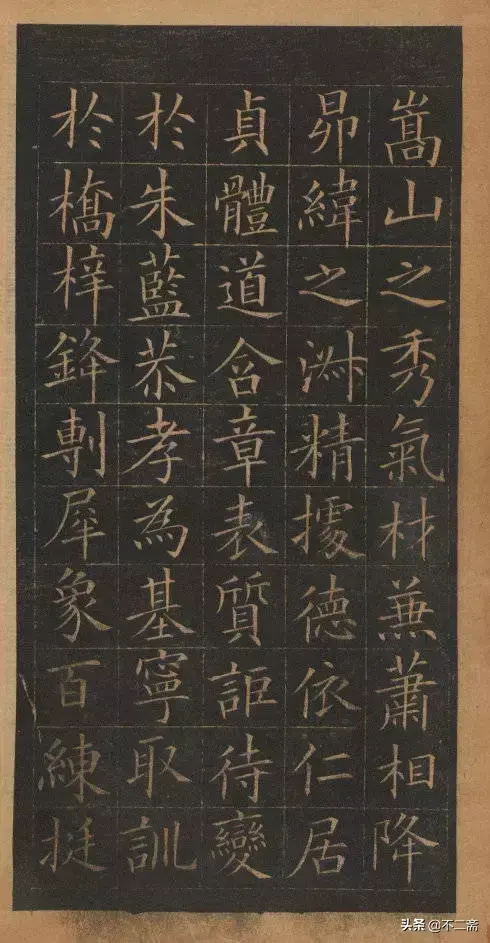 嵩山之秀氣材蕪蕭相降
昴緯之淑精據德依仁居
貞體道含章表質詎待變
於朱藍恭孝為基寧取訓
於橋梓鋒剸犀象百練挺
头条@不二斋